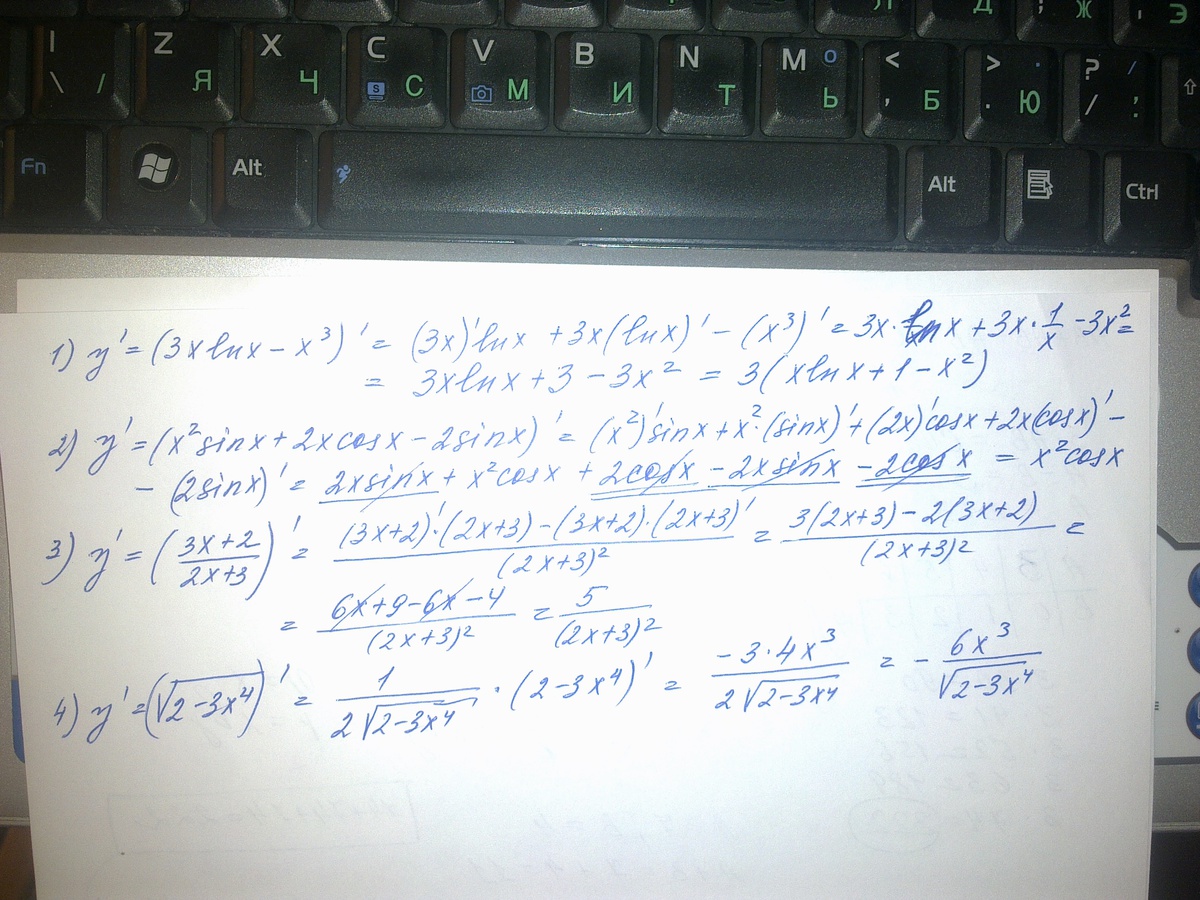 Л Д ; Ж , Э
| \ / Z Я X Ч C S С V М B И N Т M О Ь < , Б > . Ю ? / / ;
Fn Alt Alt Ctrl
1) y' = (3x ln x - x³)' = (3x)' ln x + 3x (ln x)' - (x³)' = 3x · ln x + 3x · 1/x - 3x² =
= 3x ln x + 3 - 3x² = 3(x ln x + 1 - x²)
2) y' = (x² sin x + 2x cos x - 2 sin x)' = (x²)' sin x + x² · (sin x)' + (2x)' cos x + 2x (cos x)' -
- (2 sin x)' = 2x sin x + x² cos x + 2 cos x - 2x sin x - 2 cos x = x² cos x
3) y' = ((3x+2)/(2x+3))' = ((3x+2)' · (2x+3) - (3x+2) · (2x+3)')/(2x+3)² = (3(2x+3) - 2(3x+2))/(2x+3)² =
= (6x + 9 - 6x - 4)/(2x+3)² = 5/(2x+3)²
4) y' = (√(2-3x⁴))' = 1/(2√(2-3x⁴)) · (2-3x⁴)' = (-3·4x³)/(2√(2-3x⁴)) = - 6x³/√(2-3x⁴)